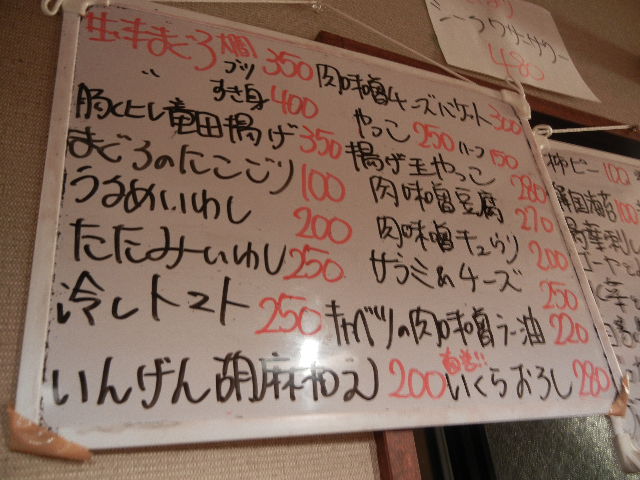 生本まぐろ大間!
ブツ 350
〃 すき身 400
豚ヒレ竜田揚げ 350
まぐろのにこごり 100
うるめいわし 200
たたみいわし 250
冷しトマト 250
いんげん胡麻和え 200
肉味噌チーズバケット 300
やっこ 250 ハーフ 150
揚げ玉やっこ 280
肉味噌豆腐 270
肉味噌キュウリ 200
サラミ&チーズ 250
キャベツの肉味噌ラー油 220
自家製!! いくらおろし 280
480
柿ピー 100
100